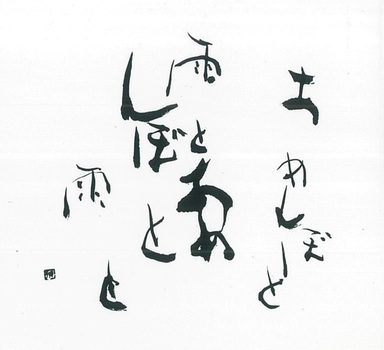 あめんぼと
雨とあめ
んぼと
雨と